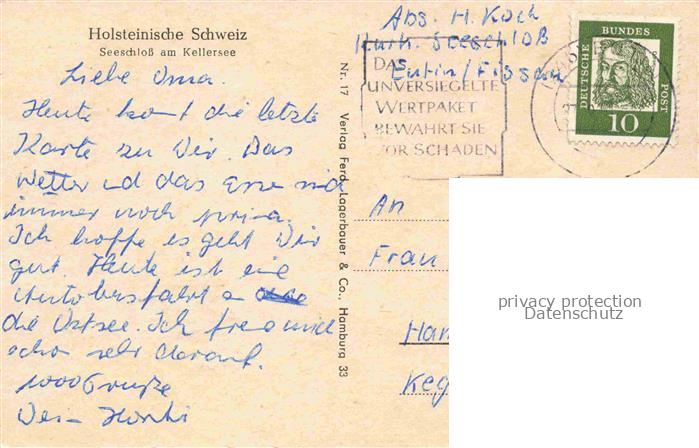 Holsteinische Schweiz
Seeschloß am Kellersee
Liebe Oma.
Heute komt die letzte
Karte zu Dir. Das
Wetter und das Essen sind
immer noch prima.
Ich hoffe es geht Dir
gut. Heute ist eine
Autobusfahrt an
die Ostsee. Ich freu mich
schon sehr darauf.
1000 Grüße
Dein
Nr. 17 Verlag Ferd. Lagerbauer & Co., Hamburg 33
Abs. H. Koch
Kurh. Seeschloß
Eutin/Fissau
DAS
UNVERSIEGELTE
WERTPAKET
BEWAHRT SIE
VOR SCHADEN
DEUTSCHE
BUNDES
POST
10
An
Frau
Ham
Keg
privacy protection
Datenschutz